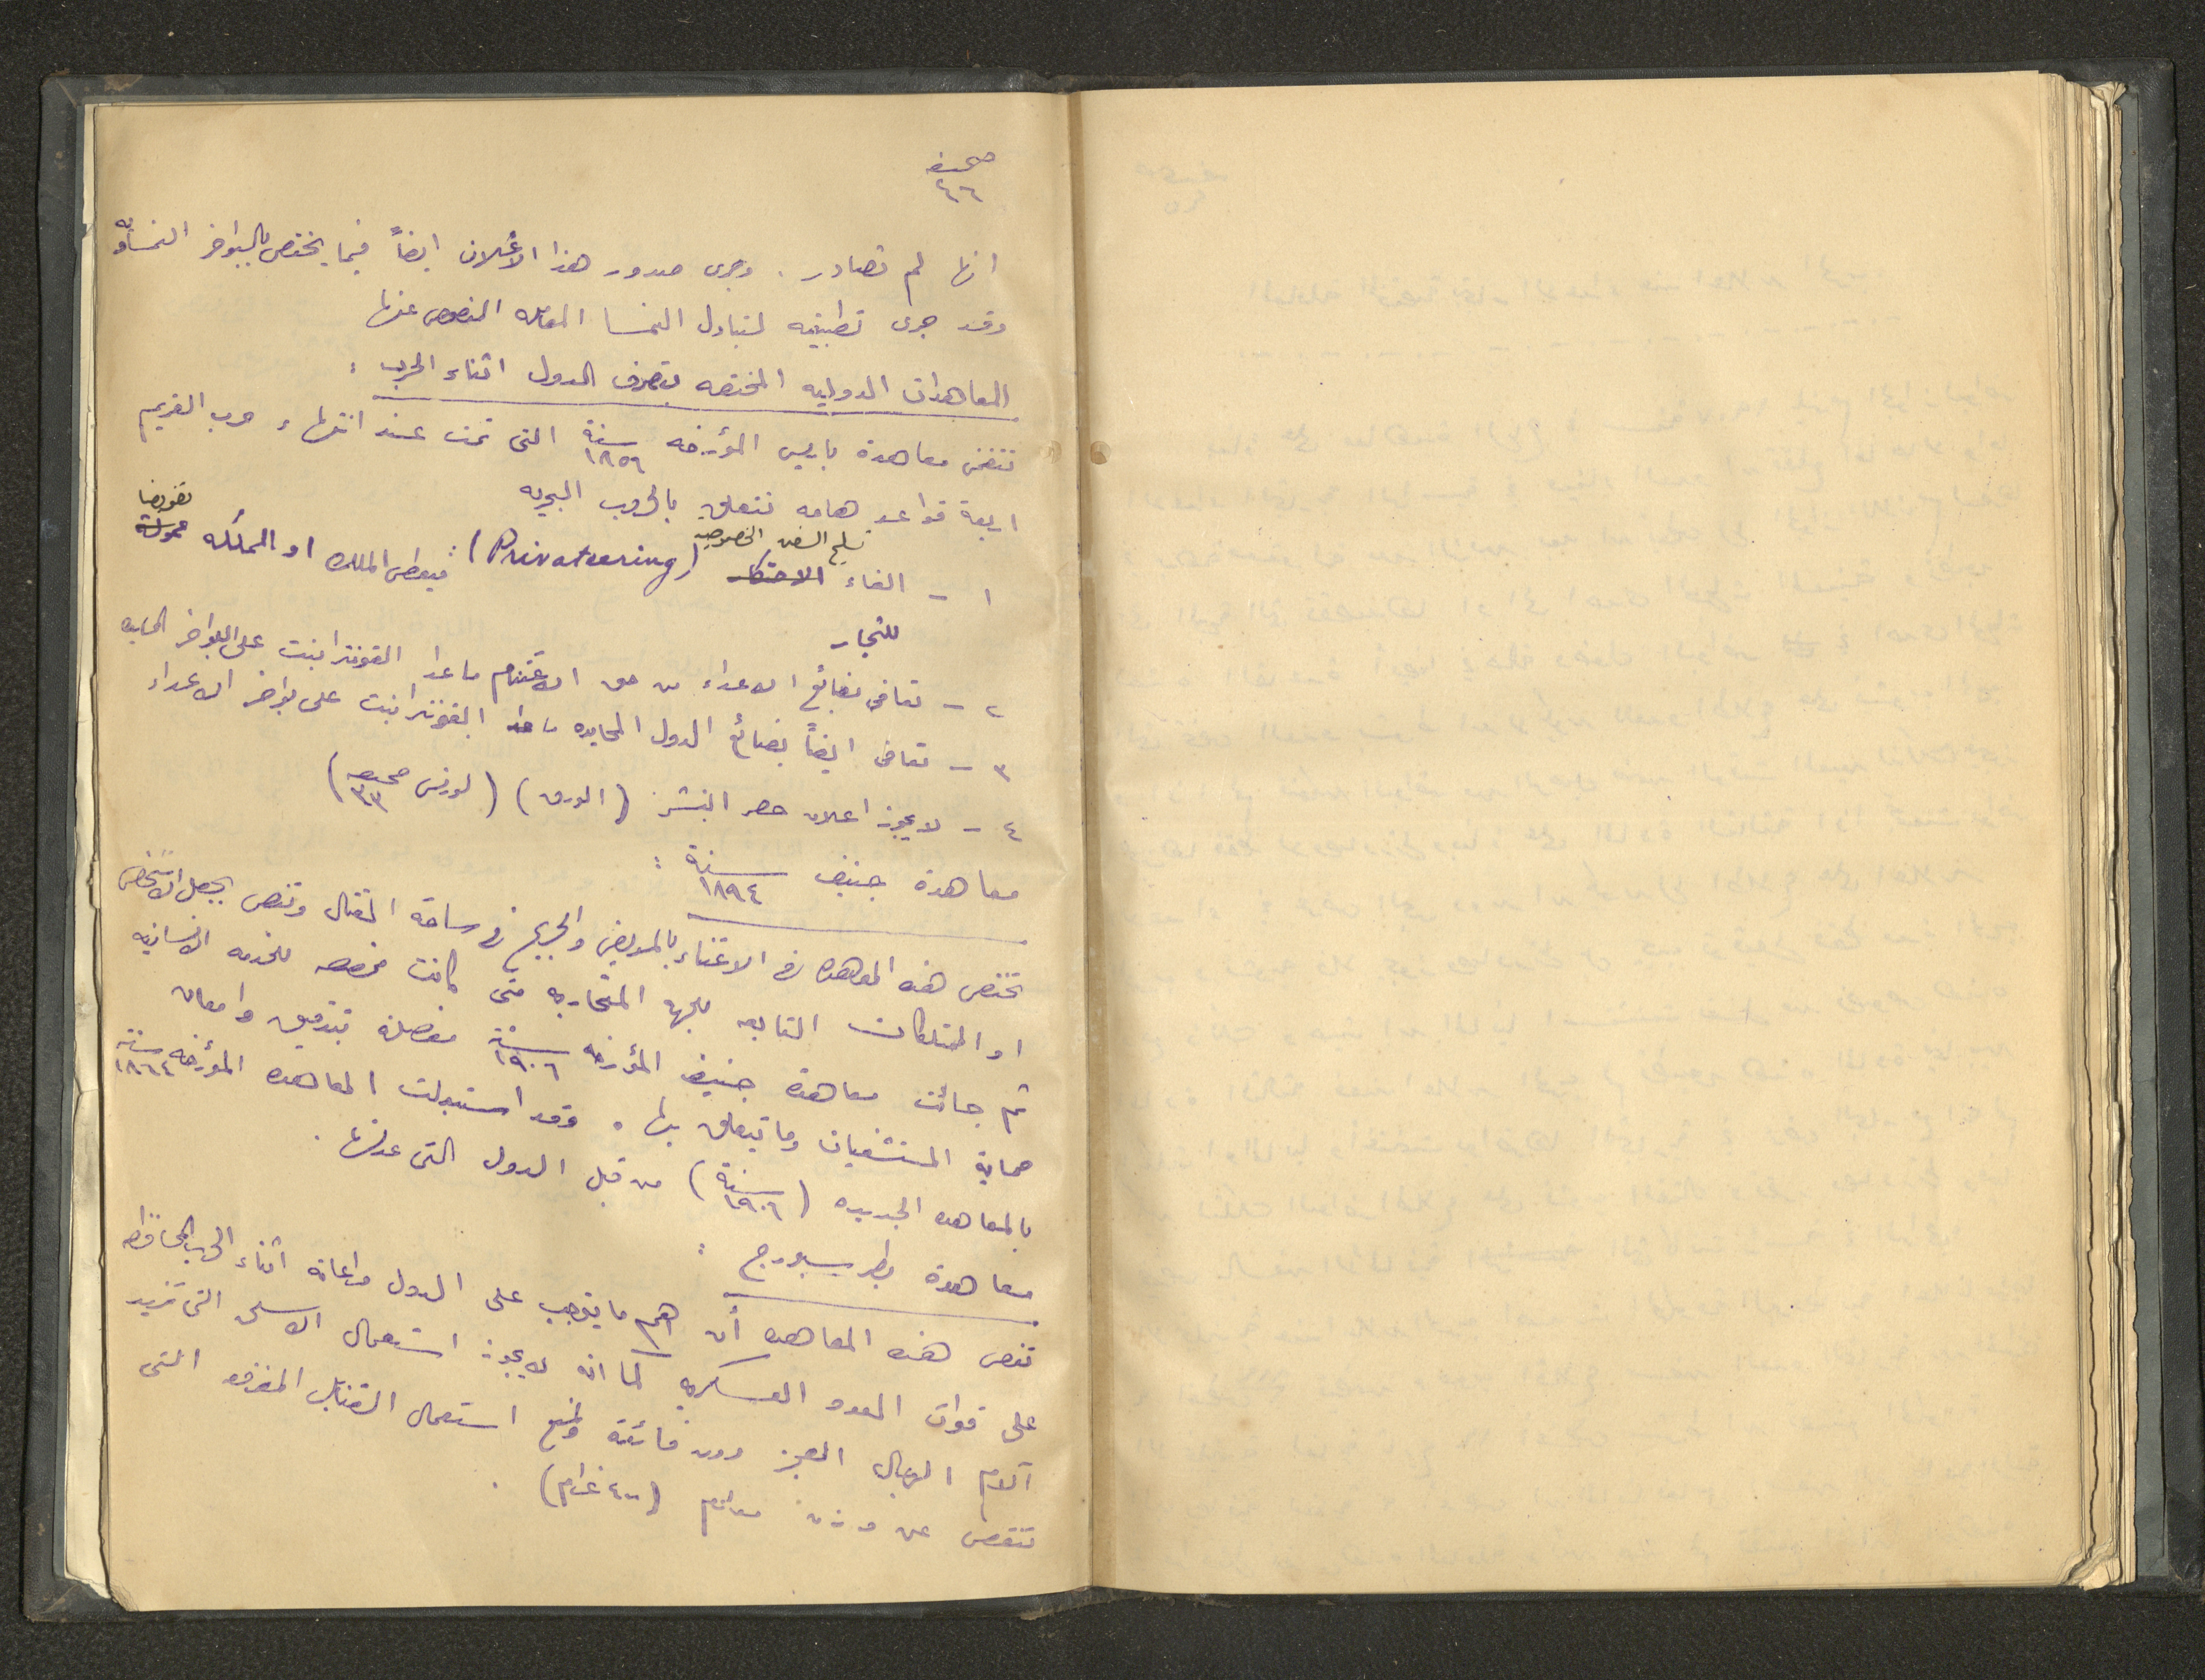 صحيفه
٤٦
انها لم تصادر . وجرى صدور هذا الاعلان ايضاً فيما يختص بالبواخر النمساويه
وقد جرى تطبيقه لتبادل النمسا المعامله المنصوص عنها
المعاهدات الدوليه المختصه بتصرف الدول اثناء الحرب :
تتضمن معاهدة باريس المؤرخه سنة ١٨٥٦ التى تمت عند انتهاء حرب القريم
اربعة قواعد هامه تتعلق بالحروب البحريه
١ - الغاء الاحتكار تسليح السفن الخصوصيه (Privateering) : فيعطى الملك او المملكه تفويضا
للتجار
٢ - تعافى بضائع الاعداء من حق الاغتنام ما عدا القونترابنت على البواخر المحايده
٣ - تعافى ايضاً بضائع الدول المحايده ما عدا القونترابنت على بواخر الاعداء
٤ - لا يجوز اعلان حصر النشر (الورق) (لورنس صحيفه ٣٣)
معاهدة جنيف سنة ١٨٩٤ :
تختص هذه المعاهده في الاعتناء بالمريض والجريح في ساحة القتال وتنص بجعل الاشخاص
او الممتلكات التابعه للجهه المتحاربه متى كانت مخصصه للخدمه الانسانيه
ثم جائت معاهدة جنيف المؤرخه سنة ١٩٠٦ مفصلة بتدقيق وامعان
حماية المستشفيات وما يتعلق بها . وقد استبدلت المعاهده المؤرخه سنة ١٨٦٤
بالمعاهده الجديده (سنة ١٩٠٦) من قبل الدول التى عدلتها .
معاهدة بطرسبورج :
تنص هذه المعاهده أن اهم ما يتوجب على الدول مراعاته اثناء الحرب المحافظه
على قوات العدو العسكريه كما انه لا يجوز استعمال الاسلحه التى تزيد
آلام الرجال العجز دون فائدة ومنع استعمال القنابل المفرقعه التى
تنقص عن وزن معلوم (٤٠٠ غرام) .